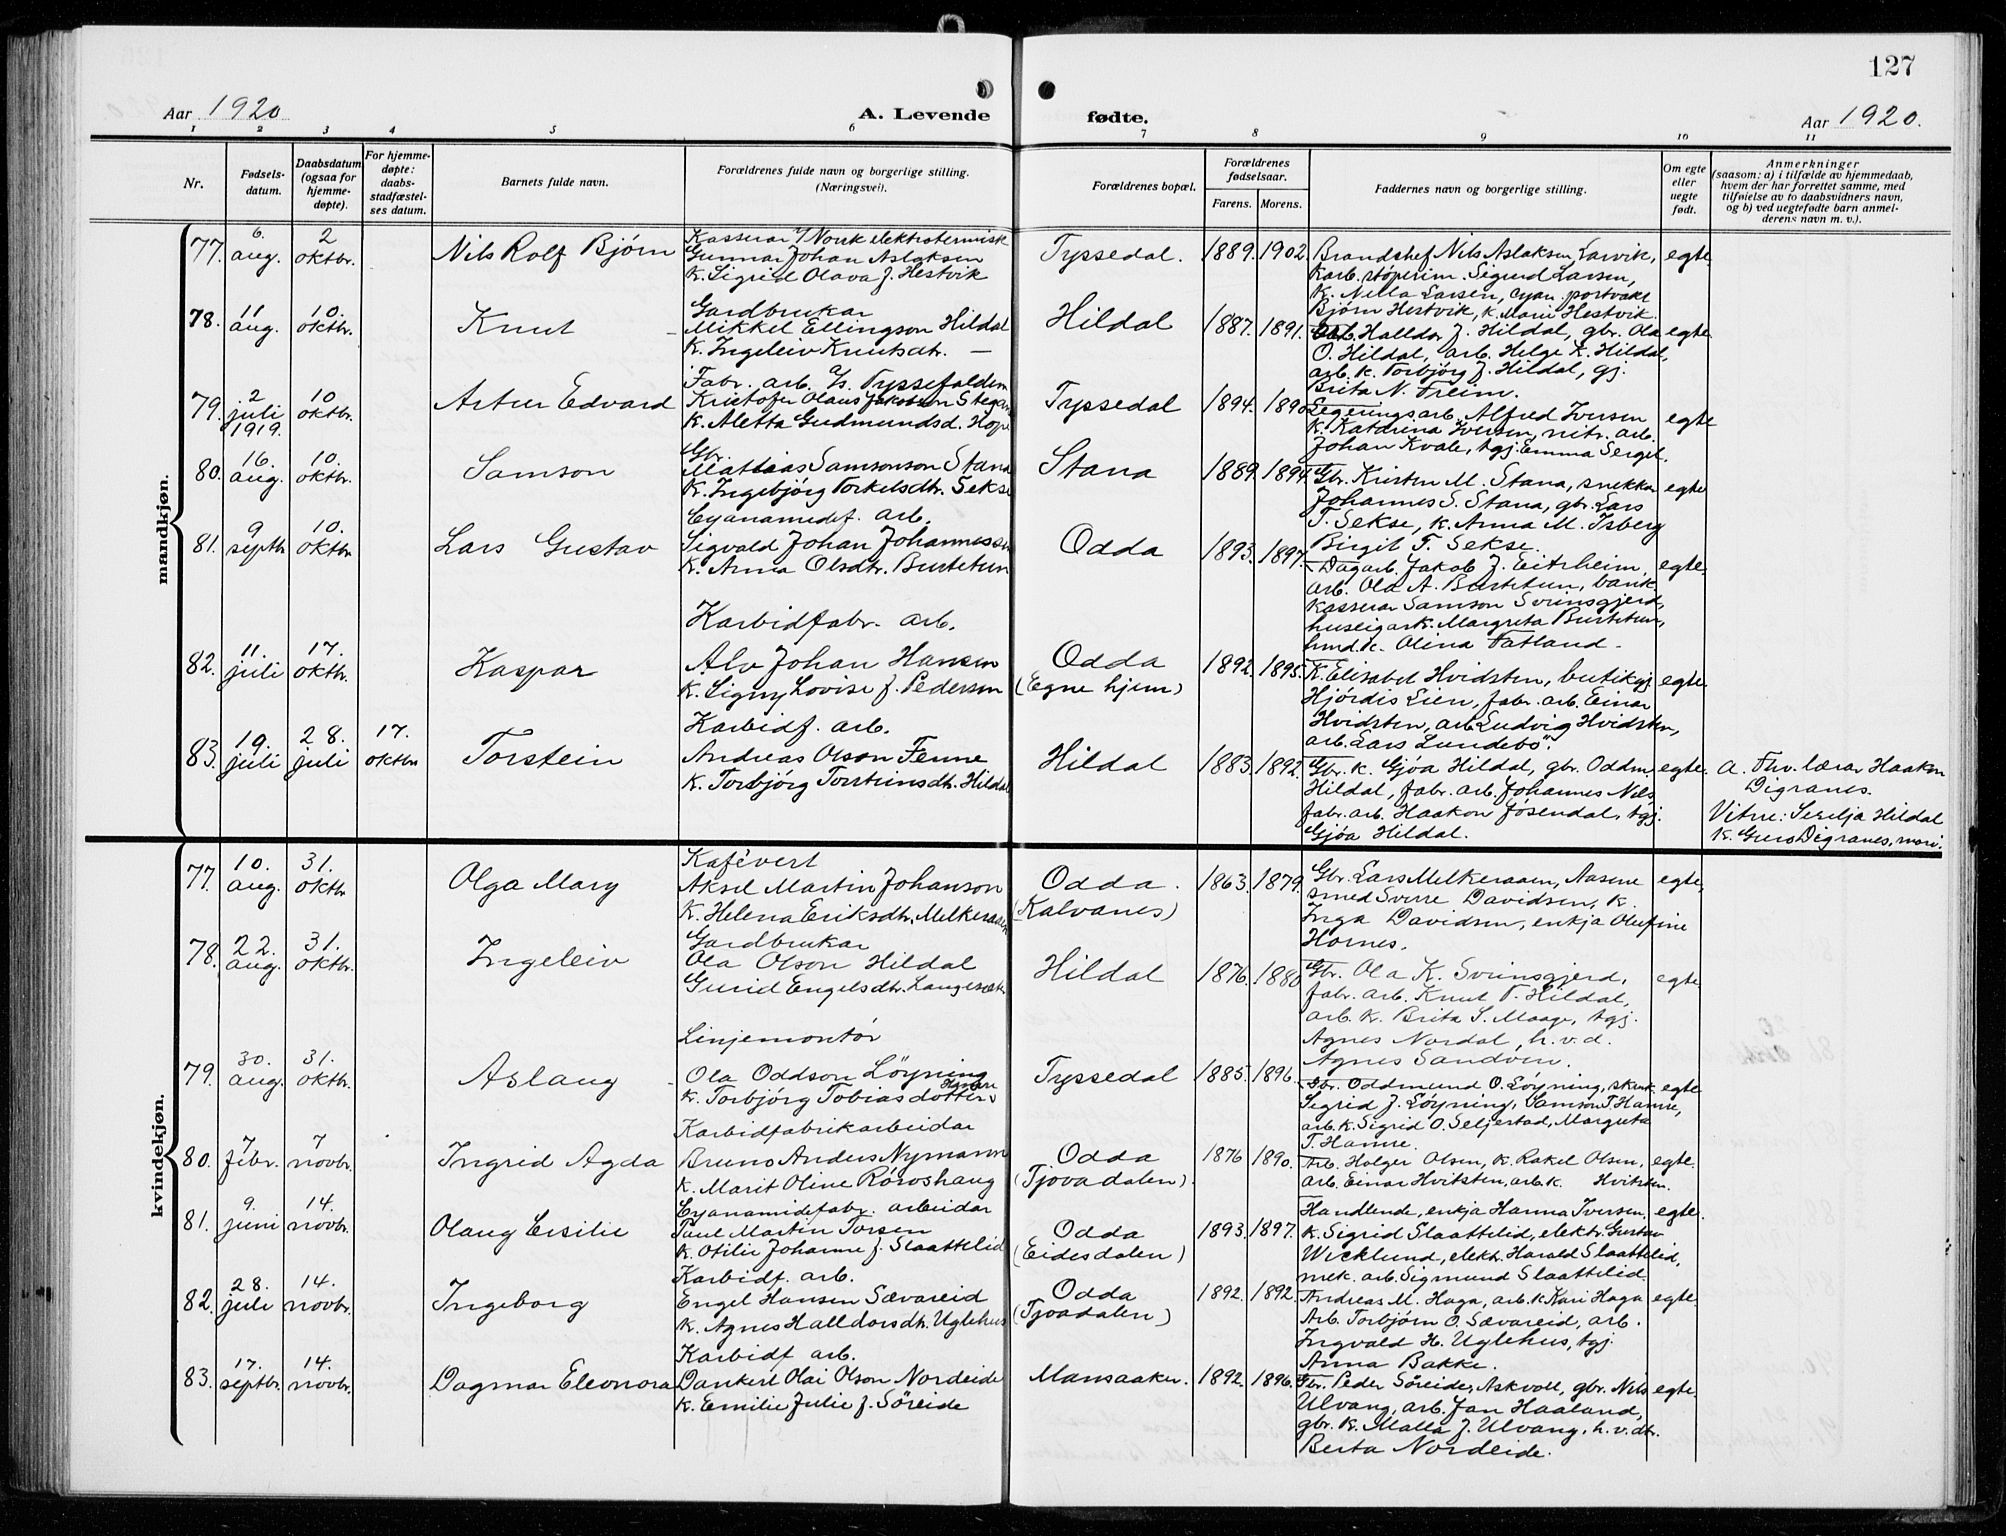 127
Aar 1920
A. Levende fødte.
Aar 1920.
1 2 3 4 5 6 7 8 9 10 11
Nr.
Fødsels-
datum.
Daabsdatum
(ogsaa for
hjemme-
døpte).
For hjemme-
døpte:
daabs-
stadfæstel-
ses datum.
Barnets fulde navn.
Forældrenes fulde navn og borgerlige stilling.
(Næringsvei).
Forældrenes bopæl.
Forældrenes
fødselsaar.
Farens. Morens.
Faddernes navn og borgerlige stilling.
Om egte
eller
uegte
født.
Anmerkninger
(saasom: a) i tilfælde av hjemmedaab,
hvem der har forrettet samme, med
tilføielse av to daabsvidners navn,
og b) ved uegtefødte barn anmel-
derens navn m. v.).
mandkjøn.
77. 6. aug. 2 oktbr. Nils Rolf Bjørn
Kasserar Norsk elektrotermisk
Gunnar Johan Aslaksen
K. Sigrid Olava J. Hestvik
Tyssedal. 1889. 1902.
Brandshef Nils Aslaksen Larvik,
Karb. støperim. Sigurd Larsen,
K. Nella Larsen, cyan. portvakt
Bjørn Hestvik, K. Marie Hestvik.
egte.
78. 11 aug. 10. oktbr. Knut
Gardbrukar
Mikkel Ellingson Hildal
K. Ingeleiv Knutsdtr. —
Hildal 1887. 1891.
Halldor J. Hildal, gbr. Ola
O. Hildal, arb. Helge K. Hildal,
arb. k. Torbjörg J. Hildal, gj.
Brita N. Freim.
egte
79. 2 juli 1919. 10 oktbr. Artur Edvard
Fabr. arb. Tyssefaldene
Kristofer Olaus Jakobson
K. Aletta Gudmundsd. Hope
Tyssedal 1894. 1890
Segerungsarb. Alfred Iversen
K. Katdrina Iversen, nitr. arb.
Johan Kvale, tgj. Emma
egte
80. 16 aug. 10. oktbr. Samson
Gbr.
Mattias Samsonson Stana
K. Ingebjörg Torkelsdtr. Sekse
Stana 1889. 1894.
Gbr. Kristen M. Stana, snekkar
Johannes S. Stana, gbr. Lars
T. Sekse, K. Anna M. Isberg
Birgit T. Sekse.
egte
81. 9 septbr 10. oktbr. Lars Gustav
Cyanamidf. arb.
Sigvald Johan Johannessen
K. Anna Olsdtr. Bustetun
Odda 1893. 1897.
Dagarb. Jakob J. Eitrheim,
arb. Ola A. Bustetun, bank
kasserar Samson Svinsgjerd,
huseigark. Margreta Bustetun,
hmd. k. Olina Tatland.
egte.
82. 11. juli 17. oktbr. Kaspar
Karbidfabr. arb.
Alv Johan Hansen
K. Signy Lovise J. Pedersen
Odda
(Egne hjem)
1892. 1895.
K. Elisabet Hvidsten, butikgj.
Hjördis Lien, fabr. arb. Einar
Hvidsten, arb. Ludvig Hvidsten,
arb. Lars Lundebö.
egte.
83. 19. juli 28. juli 17. oktbr Torstein
Karbidf. arb.
Andreas Olson Fenne
K. Torbjörg Torsteinsdtr. Hildal
Hildal 1883. 1892.
Gbr. k. Gjøa Hildal, gbr. Oddm.
Hildal, fabr. arb. Johannes Nils
fabr. arb. Haakon Jösendal, tgj.
Gjøa Hildal.
egte.
a. Fhv. lærar Haakon
Digranes.
Vitne: Sesilja Hildal
K. Guro Digranes,
kvindekjøn.
77. 10. aug. 31. oktbr Olga Mary
Kafévert
Aksel Martin Johanson
K. Helena Eriksdtr. Melkeraaen
Odda.
(Kalvanes)
1863. 1879.
Gbr. Lars Melkeraaen, Aasene
smed Sverre Davidsen, K.
Inga Davidsen, enkja Olufine
Hornes.
egte,
78. 22. aug. 31. oktbr. Ingeleiv
Gardbrukar
Ola Olson Hildal
Gurid Engelsdtr. Langesæt
Hildal 1876. 1880
Gbr. Ola K. Svinsgjerd,
fabr. arb. Knut T. Hildal,
arb. K. Brita S. Maage, tgj.
Agnes Nordal, h.v.d.
Agnes Sandvin.
egte.
79. 30. aug. 31. oktbr. Aslaug
Linjemontør
Ola Oddson Löyning
K. Torbjörg Tobiasdotter Hamre
Tyssedal 1885. 1896.
Gbr. Oddmund O. Löyning,
Sigrid J. Löyning, Samson T. Hamre,
arb. k. Sigrid O. Seljestad, Margreta
T. Hamre.
egte
80. 7 febr. 7 novbr. Ingrid Agda
Karbidfabrikarbeidar
Bruno Anders Nymann
K. Marit Oline Röroshaug
Odda
(Tjovadalen).
1876 1890.
Arb. Holger Olsen, K. Rakel Olsen,
arb. Einar Hvitsten, arb. k. Hvitsten.
egte.
81. 9. juni 14. novbr. Olaug Ersilie
Cyanamidefabr. arbeidar
Paul Martin Torsen
K. Otilie Johanne J. Slaattelid
Odda
(Eidesdalen)
1893 1897.
Handlende, enkja Hanna Iversen,
K. Sigrid Slaattelid, elektr. Gustav
Wicklund, elektr. Harald Slaattelid,
mek. arb. Sigmund Slaattelid
egte.
82. 28. juli 14. novbr. Ingeborg
Karbidf. arb.
Engel Hansen Sævareid
K. Agnes Halldorsdtr. Uglehus
Odda
(Tjoadalen)
1892. 1892.
Andreas M. Haga, arb. k. Kari Haga
Arb. Torbjørn O. Sævareid, arb.
Ingvald H. Uglehus, tgj.
Anna Bakke.
egte.
83. 17. septbr. 14. novbr. Dagmar Eleonora
Karbidf arb.
Dankert Olai Olson Nordeide
K. Emilie Julie J. Söreide
Mansaaker. 1892. 1896.
Gbr. Peder Söreide, Askvoll, gbr. Nils
Ulvang, arb. Jan Haaland,
gbr. k. Malla J. Ulvang, h.v.dtr.
Berta Nordeide.
egte.